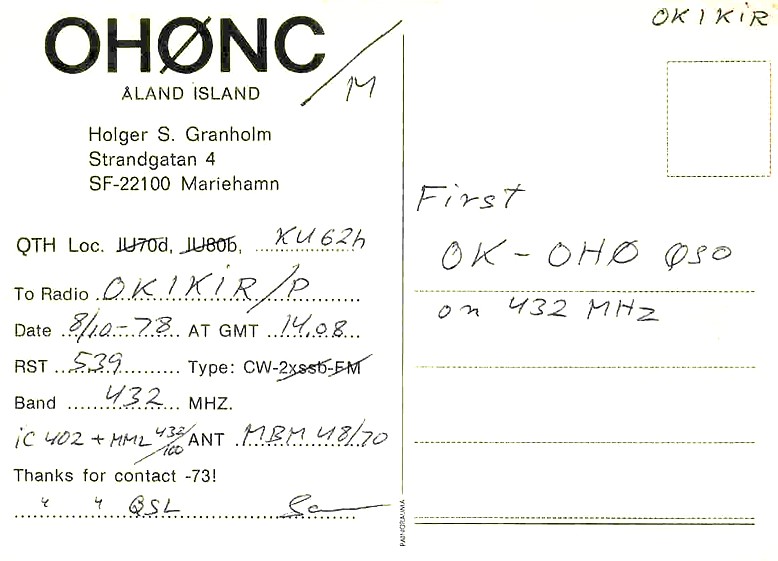 OHØNC/M
ÅLAND ISLAND
Holger S. Granholm
Strandgatan 4
SF-22100 Mariehamn
QTH Loc. IU70d, JU80b, KU62h
To Radio OK1KIR/P
Date 8/10-78 AT GMT 14.08
RST 539 Type: CW-2xssb-FM
Band 432 MHZ.
iC 402 + MML 432/100 ANT MBM 48/70
Thanks for contact -73!
" " QSL
PAINORAUMA
OK1KIR
First
OK - OHØ QSO
on 432 MHz